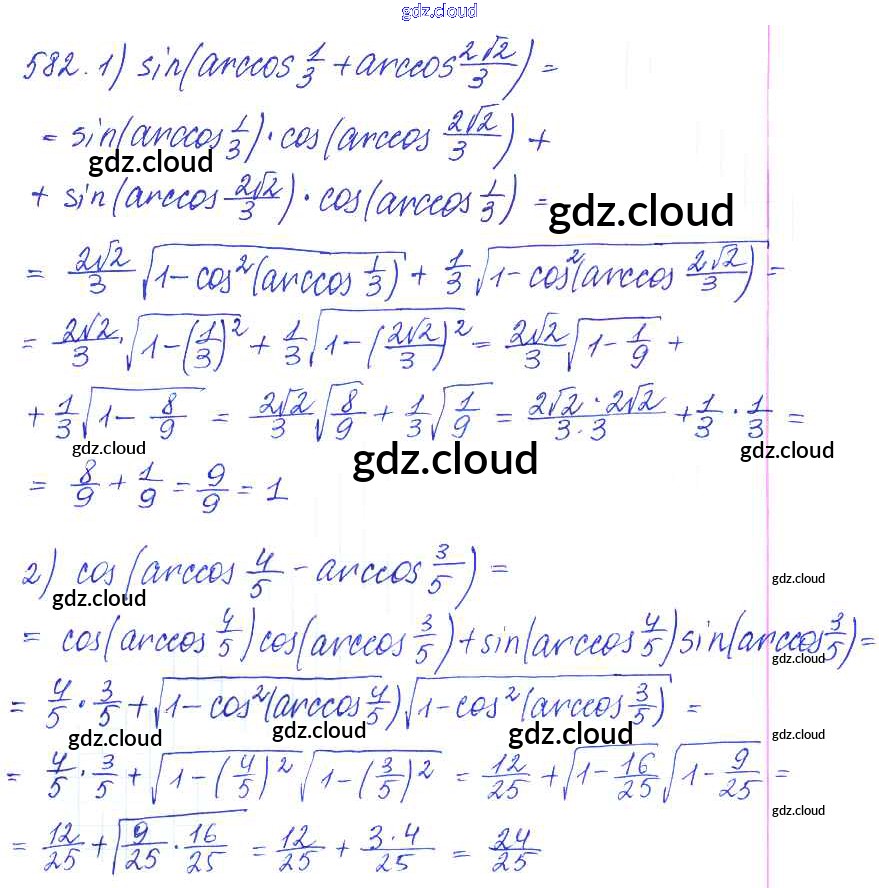 gdz.cloud
582. 1) sin(arccos 1/3 + arccos 2√2/3) =
= sin(arccos 1/3)·cos(arccos 2√2/3) +
gdz.cloud
+ sin(arccos 2√2/3)·cos(arccos 1/3) =
gdz.cloud
= 2√2/3 √(1-cos²(arccos 1/3)) + 1/3 √(1-cos²(arccos 2√2/3)) =
= 2√2/3·√(1-(1/3)²) + 1/3 √(1-(2√2/3)²) = 2√2/3 √(1-1/9) +
+ 1/3 √(1-8/9) = 2√2/3 √(8/9) + 1/3 √(1/9) = 2√2·2√2/3·3 + 1/3·1/3 =
gdz.cloud gdz.cloud gdz.cloud
= 8/9 + 1/9 = 9/9 = 1
2) cos(arccos 4/5 - arccos 3/5) =
gdz.cloud gdz.cloud
= cos(arccos 4/5)cos(arccos 3/5)+sin(arccos 4/5)sin(arccos 3/5) =
gdz.cloud
= 4/5·3/5 + √(1-cos²(arccos 4/5)) √(1-cos²(arccos 3/5)) =
gdz.cloud gdz.cloud gdz.cloud gdz.cloud
= 4/5·3/5 + √(1-(4/5)²) √(1-(3/5)²) = 12/25 + √(1-16/25) √(1-9/25) =
gdz.cloud
= 12/25 + √(9/25·16/25) = 12/25 + 3·4/25 = 24/25
gdz.cloud